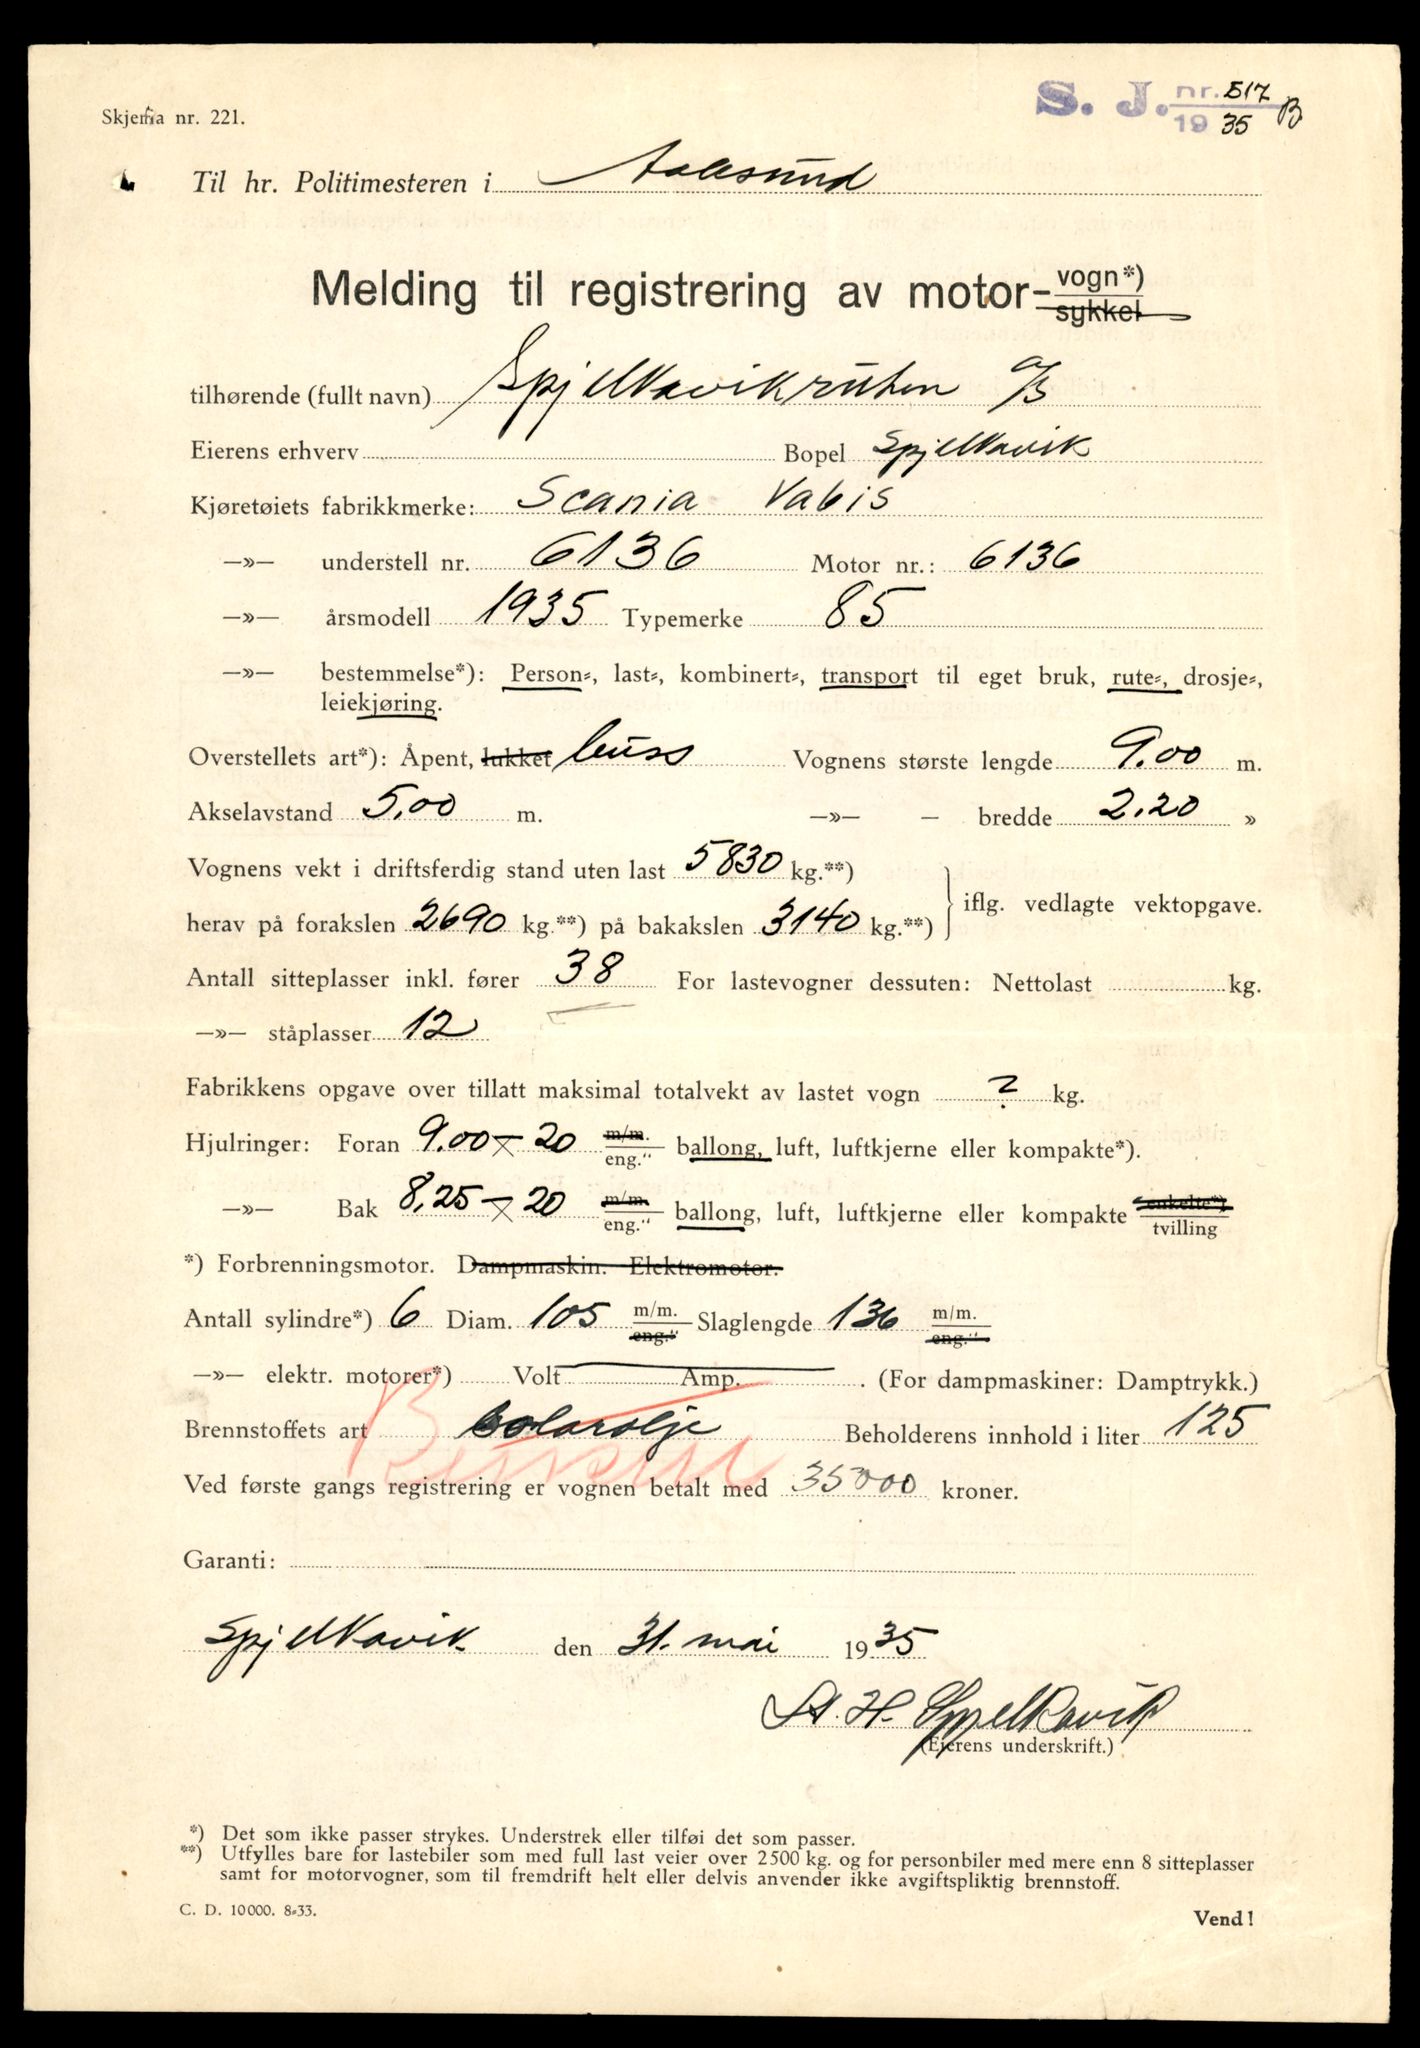 Skjema nr. 221.
S. J. nr. 517 B
19 35
Til hr. Politimesteren i Aalesund
Melding til registrering av motor- vogn*)
sykkel
tilhørende (fullt navn) Spjelkavikruten A/S
Eierens erhverv Bopel Spjelkavik
Kjøretøiets fabrikkmerke: Scania Vabis
—»— understell nr. 6136 Motor nr.: 6136
—»— årsmodell 1935 Typemerke 85
—»— bestemmelse*): Person-, last-, kombinert-, transport til eget bruk, rute-, drosje-,
leiekjøring.
Overstellets art*): Åpent, lukket buss Vognens største lengde 9.00 m.
Akselavstand 5,00 m. —»— — bredde 2.20 »
Vognens vekt i driftsferdig stand uten last 5830 kg.**)
herav på forakslen 2690 kg.**) på bakakslen 3140 kg.**) iflg. vedlagte vektopgave.
Antall sitteplasser inkl. fører 38 For lastevogner dessuten: Nettolast kg.
—»— ståplasser 12
Fabrikkens opgave over tillatt maksimal totalvekt av lastet vogn ? kg.
Hjulringer: Foran 9.00 × 20 m/m. eng." ballong, luft, luftkjerne eller kompakte*).
—»— Bak 8,25 × 20 m/m. eng." ballong, luft, luftkjerne eller kompakte enkelte*) tvilling
*) Forbrenningsmotor. Dampmaskin. Elektromotor.
Antall sylindre*) 6 Diam. 105 m/m. eng." Slaglengde 136 m/m. eng."
—»— elektr. motorer*) Volt Amp. . (For dampmaskiner: Damptrykk.)
Brennstoffets art solarolje Beholderens innhold i liter 125
Ved første gangs registrering er vognen betalt med 35000 kroner.
Garanti:
Spjelkavik den 31. mai 1935
H. Spjelkavik
(Eierens underskrift.)
*) Det som ikke passer strykes. Understrek eller tilføi det som passer.
**) Utfylles bare for lastebiler som med full last veier over 2500 kg. og for personbiler med mere enn 8 sitteplasser
samt for motorvogner, som til fremdrift helt eller delvis anvender ikke avgiftspliktig brennstoff.
C. D. 10000. 8-33.
Vend!